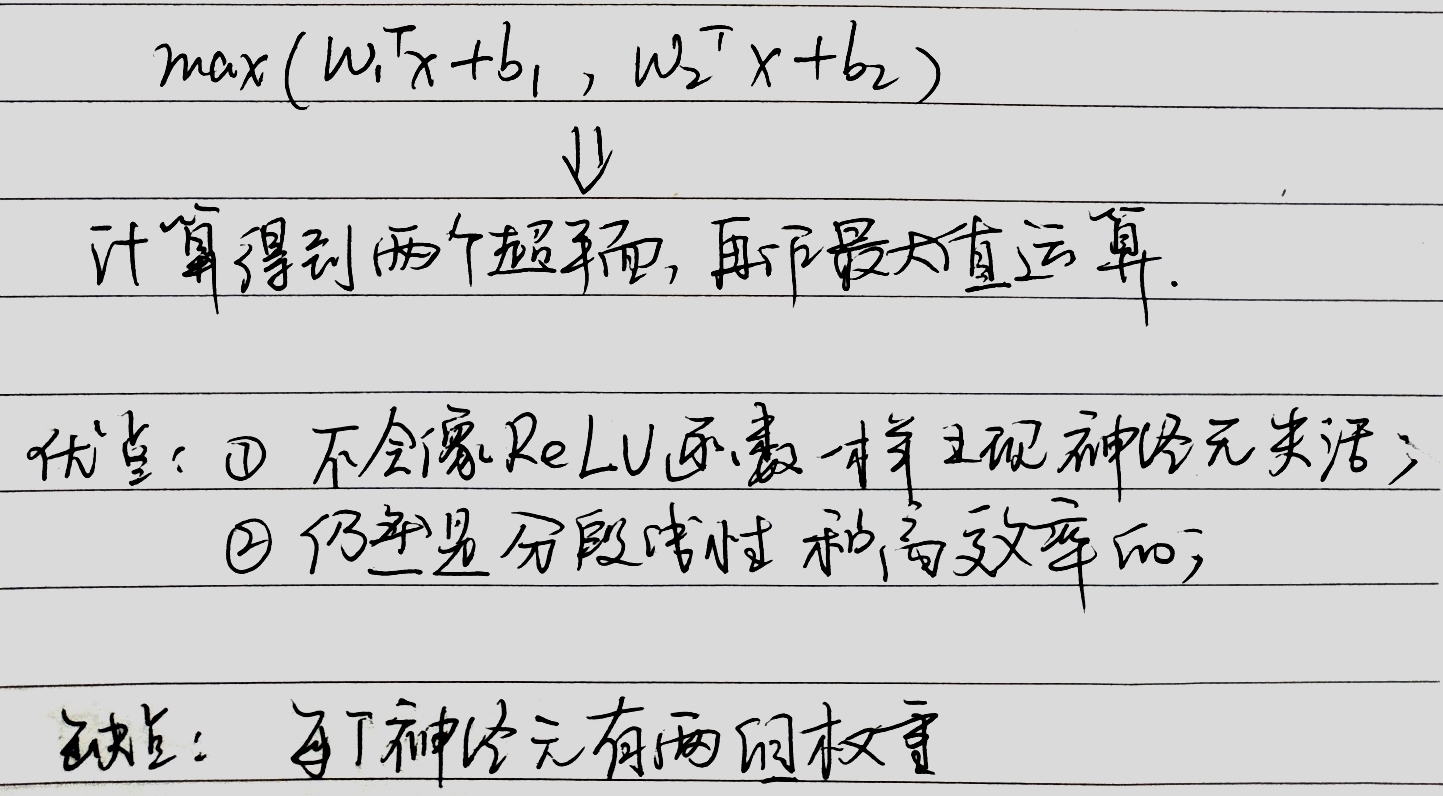 max(W₁ᵀx+b₁, W₂ᵀx+b₂)
⇓
计算得到两个超平面,再作最大值运算.
优点:① 不会像ReLU函数一样出现神经元失活;
② 仍然是分段线性和高效率的;
缺点: 每个神经元有两组权重